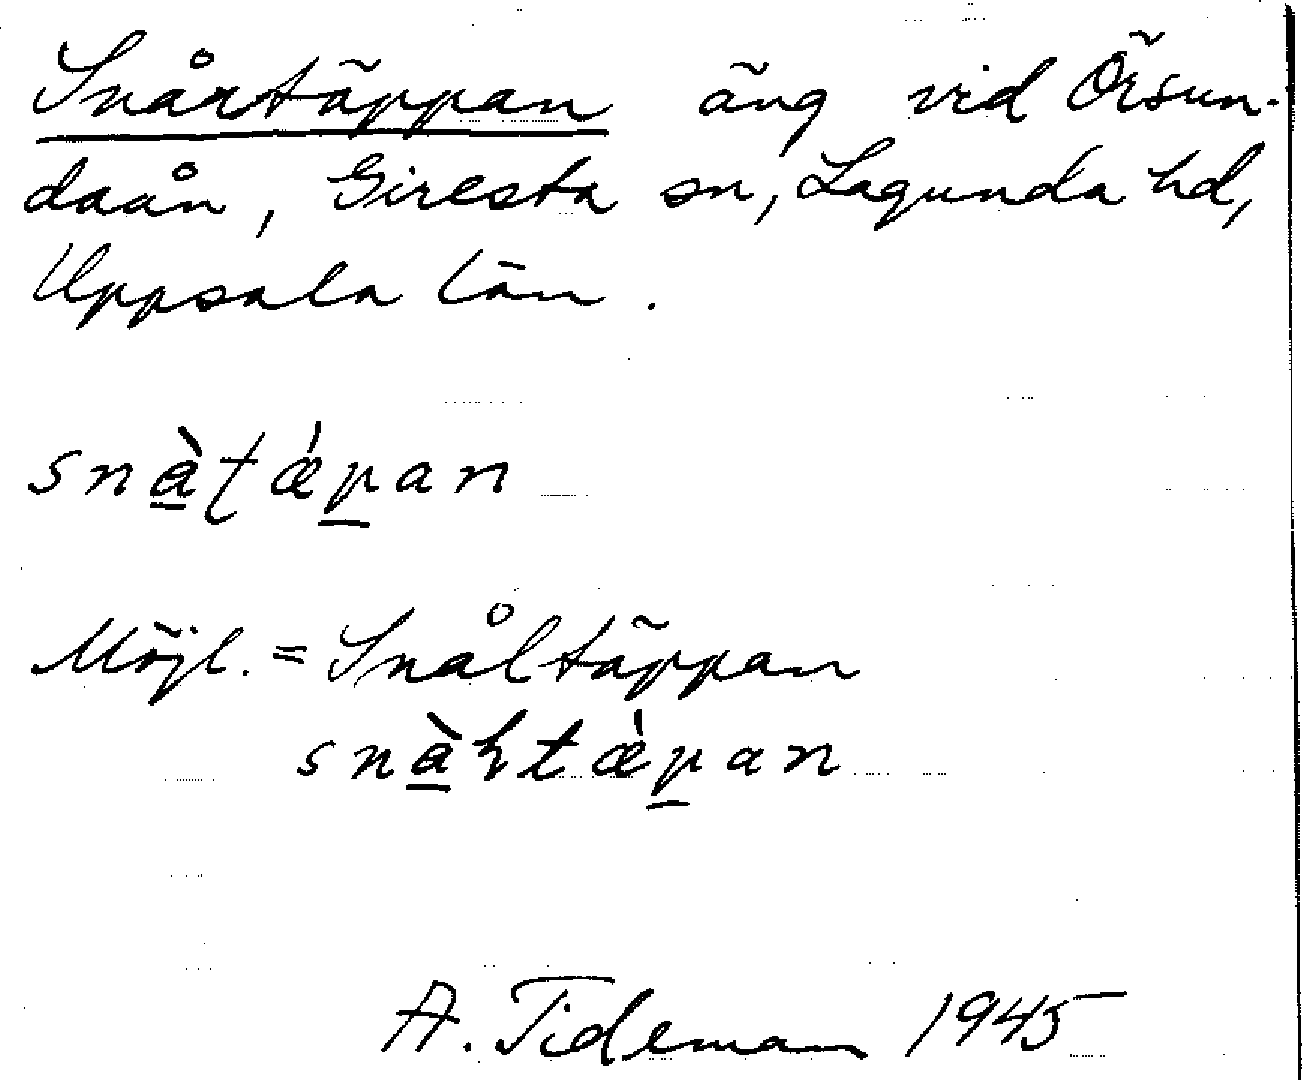 Snårtäppan äng vid Örsun-
daån, Giresta sn, Lagunda hd,
Uppsala län.
snàʈæ̀pan
Möjl. = Snåltäppan
snàɽtæ̀pan
A. Tideman 1945